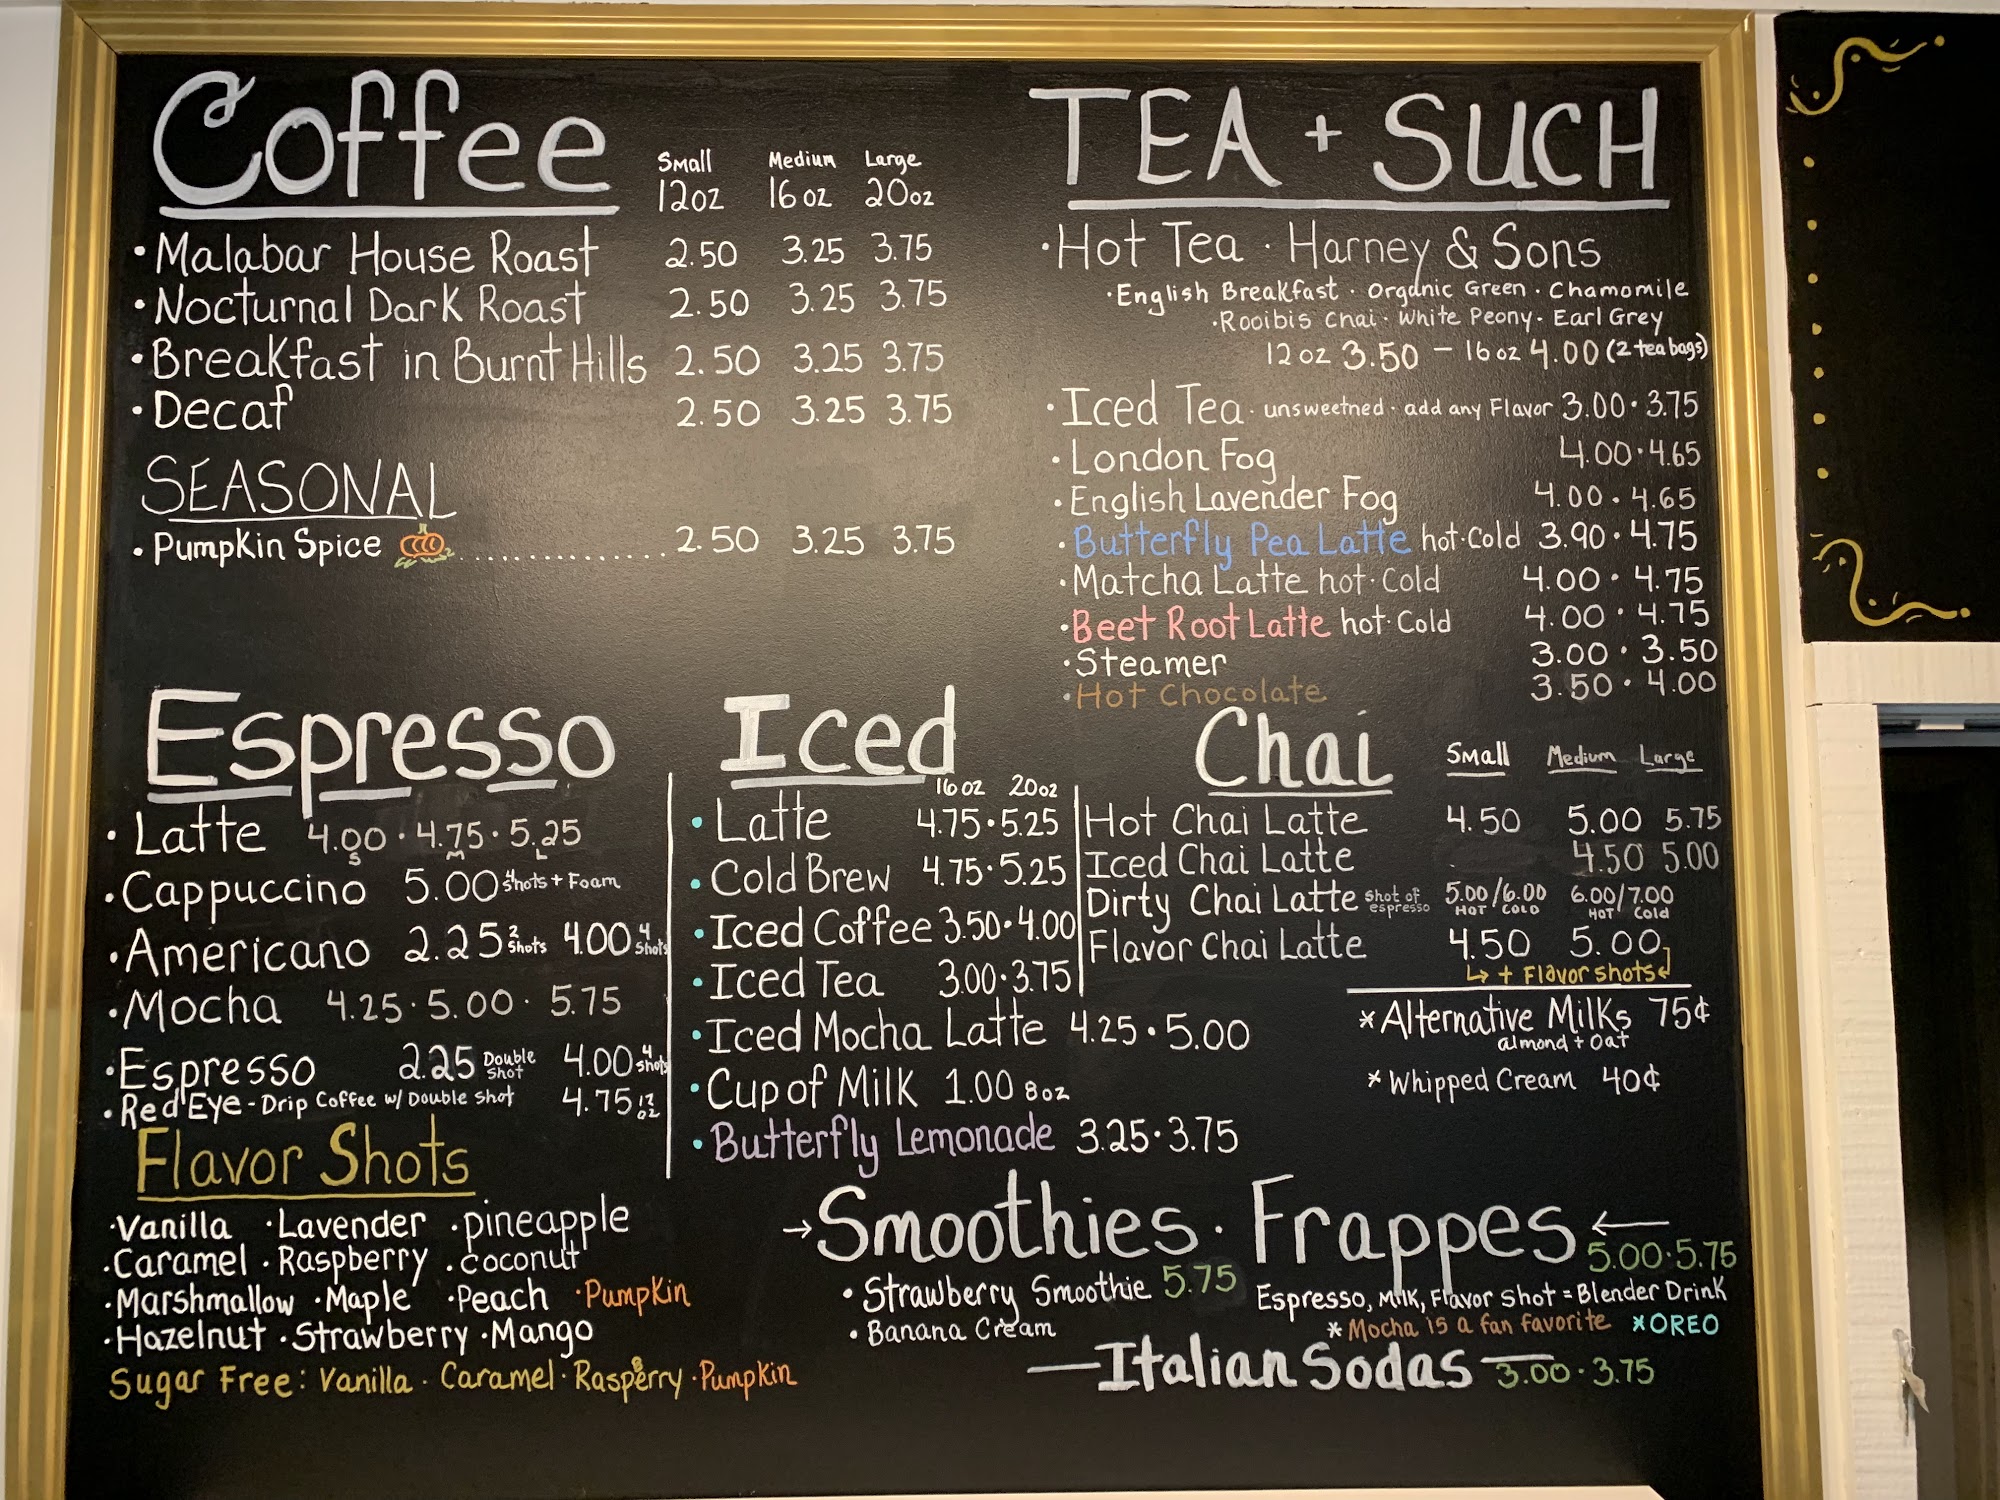 Coffee
Small Medium Large
12oz 16oz 20oz
• Malabar House Roast 2.50 3.25 3.75
• Nocturnal Dark Roast 2.50 3.25 3.75
• Breakfast in Burnt Hills 2.50 3.25 3.75
• Decaf 2.50 3.25 3.75
SEASONAL
• Pumpkin Spice .................. 2.50 3.25 3.75
TEA + SUCH
• Hot Tea · Harney & Sons
• English Breakfast · Organic Green · Chamomile
• Rooibis Chai · White Peony · Earl Grey
12oz 3.50 – 16oz 4.00 (2 tea bags)
• Iced Tea · unsweetned · add any Flavor 3.00 · 3.75
• London Fog 4.00 · 4.65
• English Lavender Fog 4.00 · 4.65
• Butterfly Pea Latte hot · Cold 3.90 · 4.75
• Matcha Latte hot · Cold 4.00 · 4.75
• Beet Root Latte hot · Cold 4.00 · 4.75
• Steamer 3.00 · 3.50
• Hot Chocolate 3.50 · 4.00
Espresso
• Latte 4.00 · 4.75 · 5.25
S M L
• Cappuccino 5.00 4 shots + Foam
• Americano 2.25 2 shots 4.00 4 shots
• Mocha 4.25 · 5.00 · 5.75
• Espresso 2.25 Double Shot 4.00 4 shots
• Red Eye - Drip Coffee w/ Double Shot 4.75 12 oz
Flavor Shots
• Vanilla • Lavender • pineapple
• Caramel • Raspberry • coconut
• Marshmallow • Maple • Peach • Pumpkin
• Hazelnut • Strawberry • Mango
Sugar Free: Vanilla · Caramel · Raspberry · Pumpkin
Iced
16oz 20oz
• Latte 4.75 • 5.25
• Cold Brew 4.75 • 5.25
• Iced Coffee 3.50 • 4.00
• Iced Tea 3.00 • 3.75
• Iced Mocha Latte 4.25 • 5.00
• Cup of Milk 1.00 8oz
• Butterfly Lemonade 3.25 • 3.75
Chai Small Medium Large
Hot Chai Latte 4.50 5.00 5.75
Iced Chai Latte 4.50 5.00
Dirty Chai Latte shot of espresso 5.00/6.00 6.00/7.00
HOT COLD HOT Cold
Flavor Chai Latte 4.50 5.00
↳ + Flavor shots
* Alternative Milks 75¢
almond + oat
* Whipped Cream 40¢
→ Smoothies · Frappes ←
5.00 · 5.75
• Strawberry Smoothie 5.75
• Banana Cream
Espresso, Milk, Flavor Shot = Blender Drink
* Mocha is a fan favorite * OREO
— Italian Sodas — 3.00 · 3.75